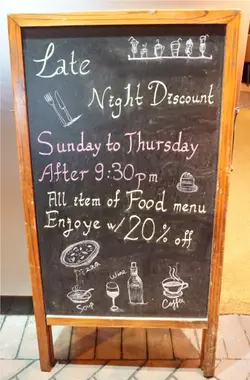 Late
Night Discount
Sunday to Thursday
After 9:30pm
All item of Food menu
Enjoye w/ 20% off
Pizza
Wine
Soup
Coffee